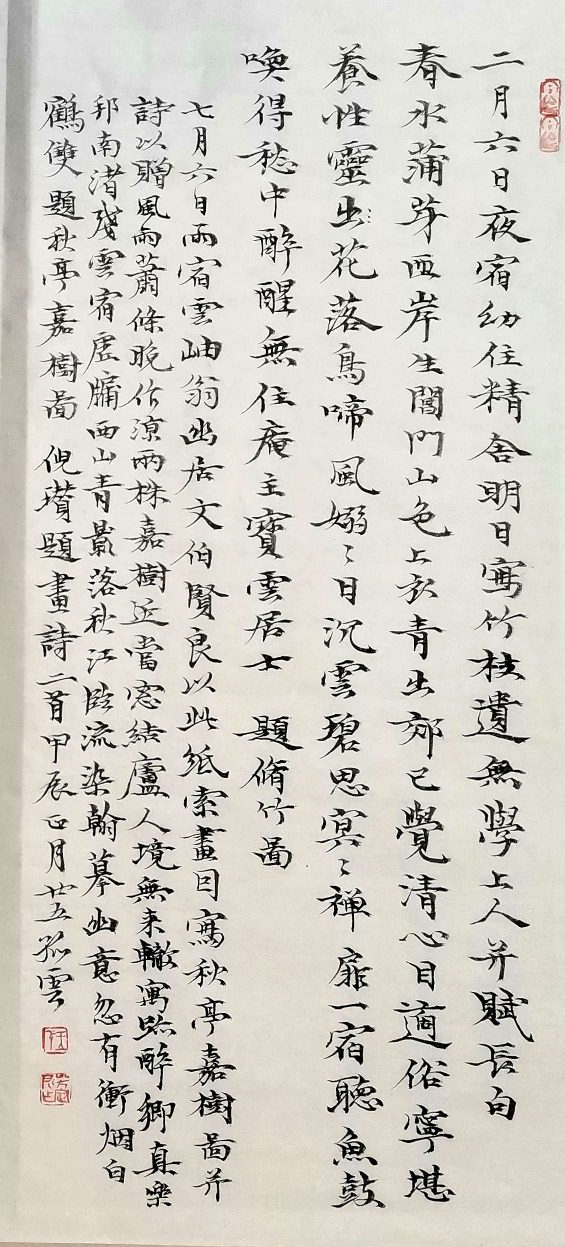 二月六日夜宿幼住精舍明日寫竹枝遺無學上人并賦長句
春水蒲芽匝岸生閶門山色上衣青出郊已覺清心目適俗寧堪
養性靈出花落鳥啼風嫋〻日沉雲碧思冥〻禅扉一宿聽魚鼓
喚得愁中醉醒無住庵主寶雲居士 題脩竹圖
七月六日雨宿雲岫翁幽居文伯賢良以此紙索畫因寫秋亭嘉樹圖并
詩以贈風雨蕭條晚作涼兩株嘉樹近當窓結廬人境無来轍寓跡醉鄉真樂
邦南渚殘雲宿虛牖西山青影落秋江臨流染翰摹幽意忽有衝烟白
鶴雙題秋亭嘉樹圖 倪瓚題畫詩二首甲辰正月廿五孤雲